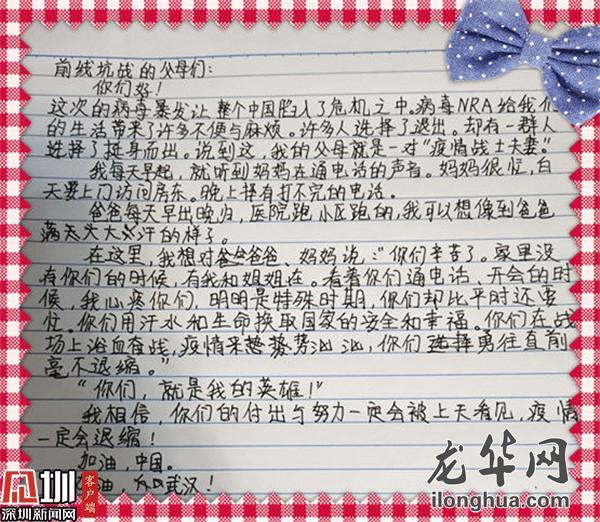 前线抗战的父母们：
你们好！
这次的病毒暴发让整个中国陷入了危机之中。病毒NRA给我们
的生活带来了许多不便与麻烦。许多人选择了退出。却有一群人
选择了挺身而出。说到这，我的父母就是一对“疫情战士夫妻。”
我每天早起，就听到妈妈在通电话的声音。妈妈很忙，白
天要上门访问房东。晚上择有打不完的电话。
爸爸每天早出晚归，医院跑小区跑的，我可以想像到爸爸
满天大汗的样子。
在这里，我想对爸爸、妈妈说：“你们辛苦了。家里没
有你们的时候，有我和姐姐在。看着你们通电话、开会的时
候，我心疼你们，明明是特殊时期，你们却比平时还要
忙。你们用汗水和生命换取国家的安全和幸福。你们在战
场上浴血奋战，疫情来势汹汹，你们选择勇往直前
毫不退缩。”
“你们，就是我的英雄！”
我相信，你们的付出与努力一定会被上天看见，疫情
一定会退缩！
加油，中国。
油，武汉！
深圳新闻网
客户端
龙华网
ilonghua.com